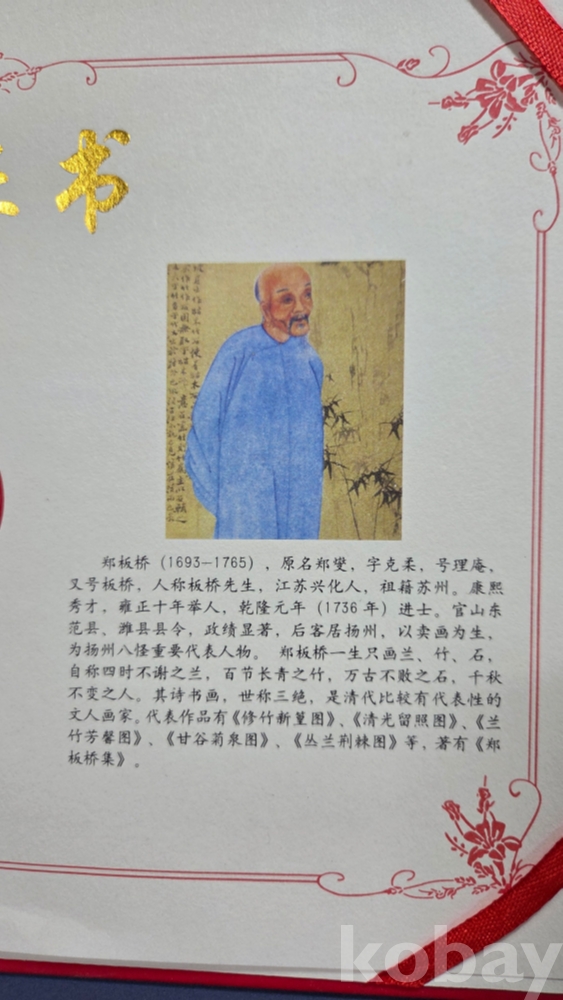 书
郑板桥（1693—1765），原名郑燮，字克柔，号理庵，
又号板桥，人称板桥先生，江苏兴化人，祖籍苏州。康熙
秀才，雍正十年举人，乾隆元年（1736年）进士。官山东
范县、潍县县令，政绩显著，后客居扬州，以卖画为生，
为扬州八怪重要代表人物。 郑板桥一生只画兰、竹、石，
自称四时不谢之兰，百节长青之竹，万古不败之石，千秋
不变之人。其诗书画，世称三绝，是清代比较有代表性的
文人画家。代表作品有《修竹新篁图》、《清光留照图》、《兰
竹芳馨图》、《甘谷菊泉图》、《丛兰荆棘图》等，著有《郑
板桥集》。
kobay